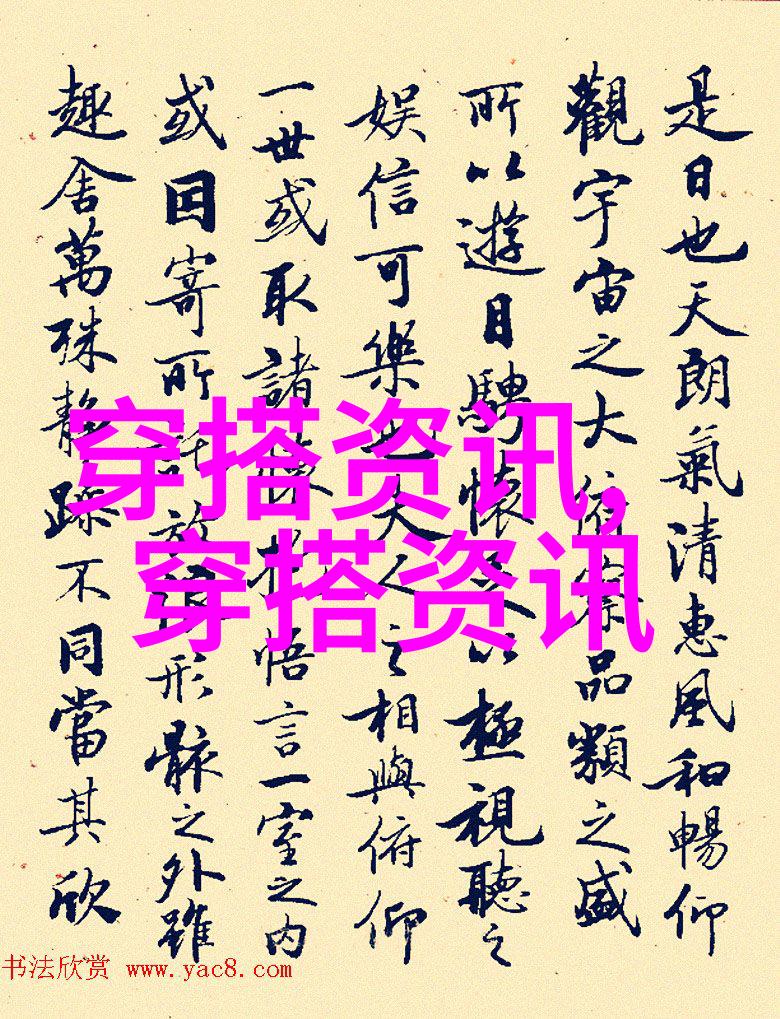 是日也天朗氣清惠風和暢仰
觀宇宙之大俯察品類之盛
所以遊目騁懷足以極視聽之
娛信可樂也夫人之相與俯仰
一世或取諸懷抱悟言一室之内
或因寄所託放浪形骸之外雖
趣舍萬殊静躁不同當其欣
穿搭资讯,
穿搭资讯
书法欣赏 www.yac8.com